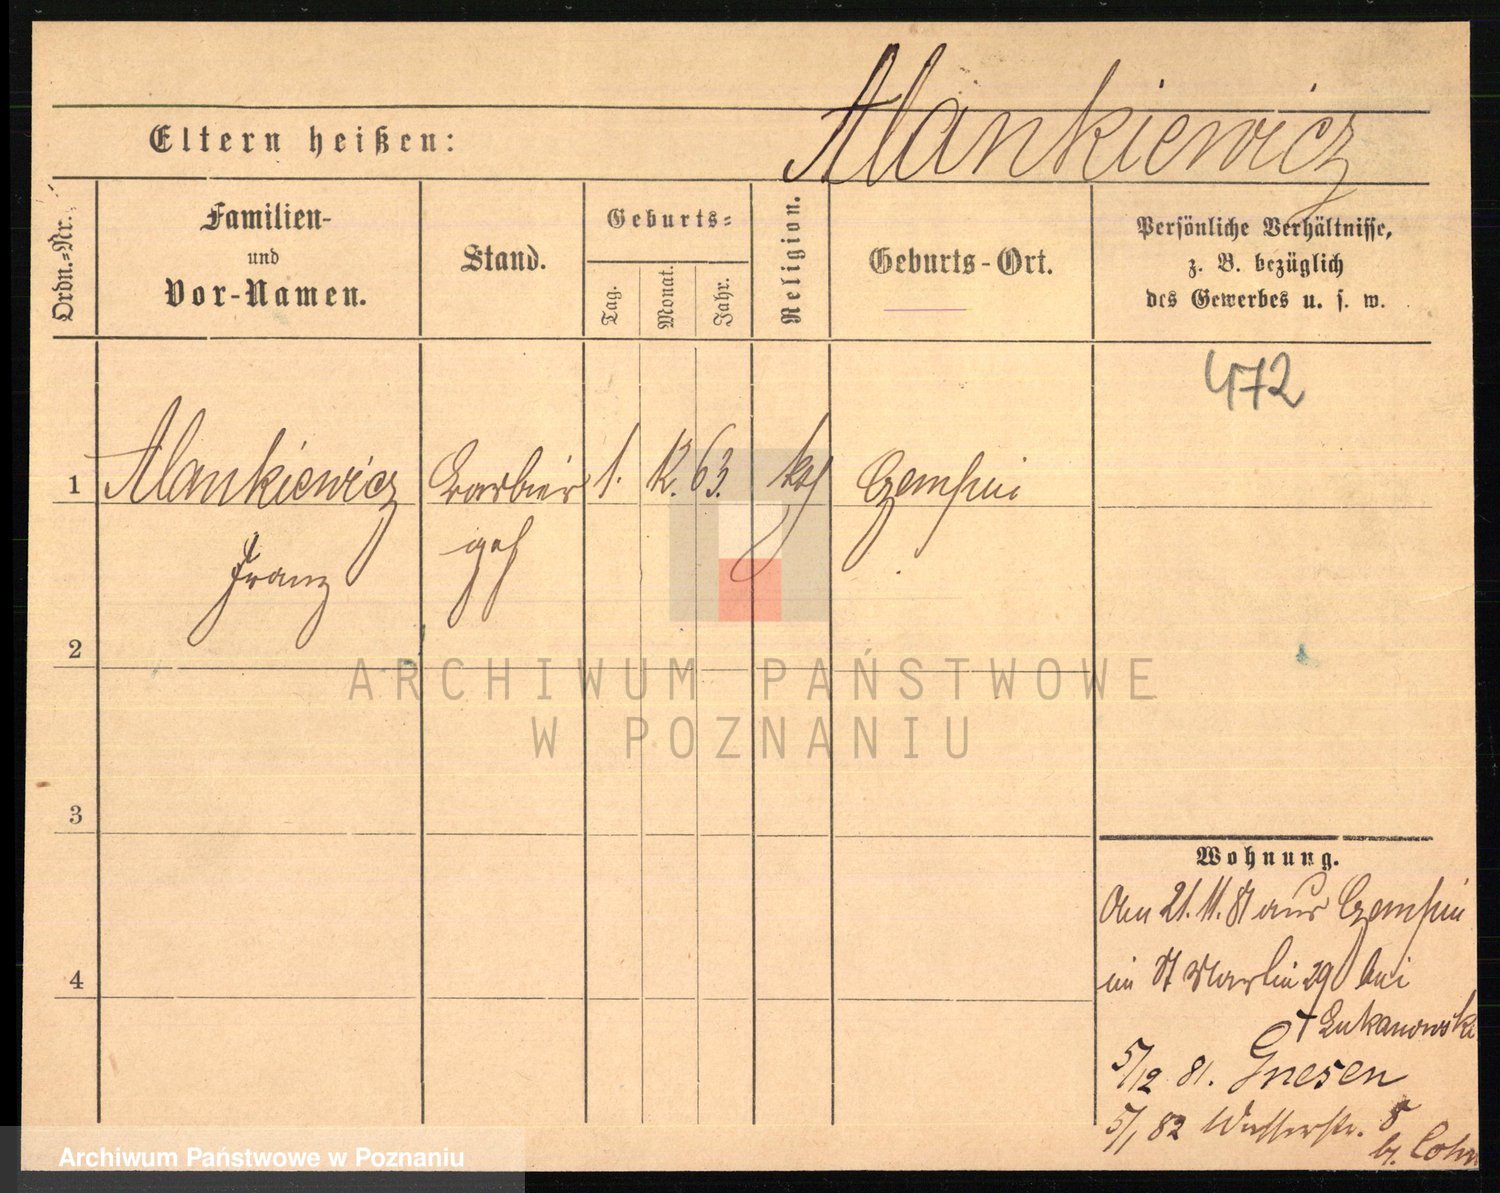 Alankiewicz
Eltern heißen:
Ordn.-Nr.
Familien-
und
Vor-Namen.
Stand.
Geburts-
Tag.
Monat.
Jahr.
Religion.
Geburts-Ort.
Persönliche Verhältnisse,
z. B. bezüglich
des Gewerbes u. s. w.
472
1 Alankiewicz Barbier 1. 12. 63. kth Czempin
Franz geh
2
3
4
Wohnung.
Am 21. 11. 81 aus Czempin
in St Martin 29 bei
+ Lukanowski
5/12 81. Gnesen
5/1 82 Wasserstr. 8
b. Cohn
ARCHIWUM PAŃSTWOWE
W POZNANIU
Archiwum Państwowe w Poznaniu